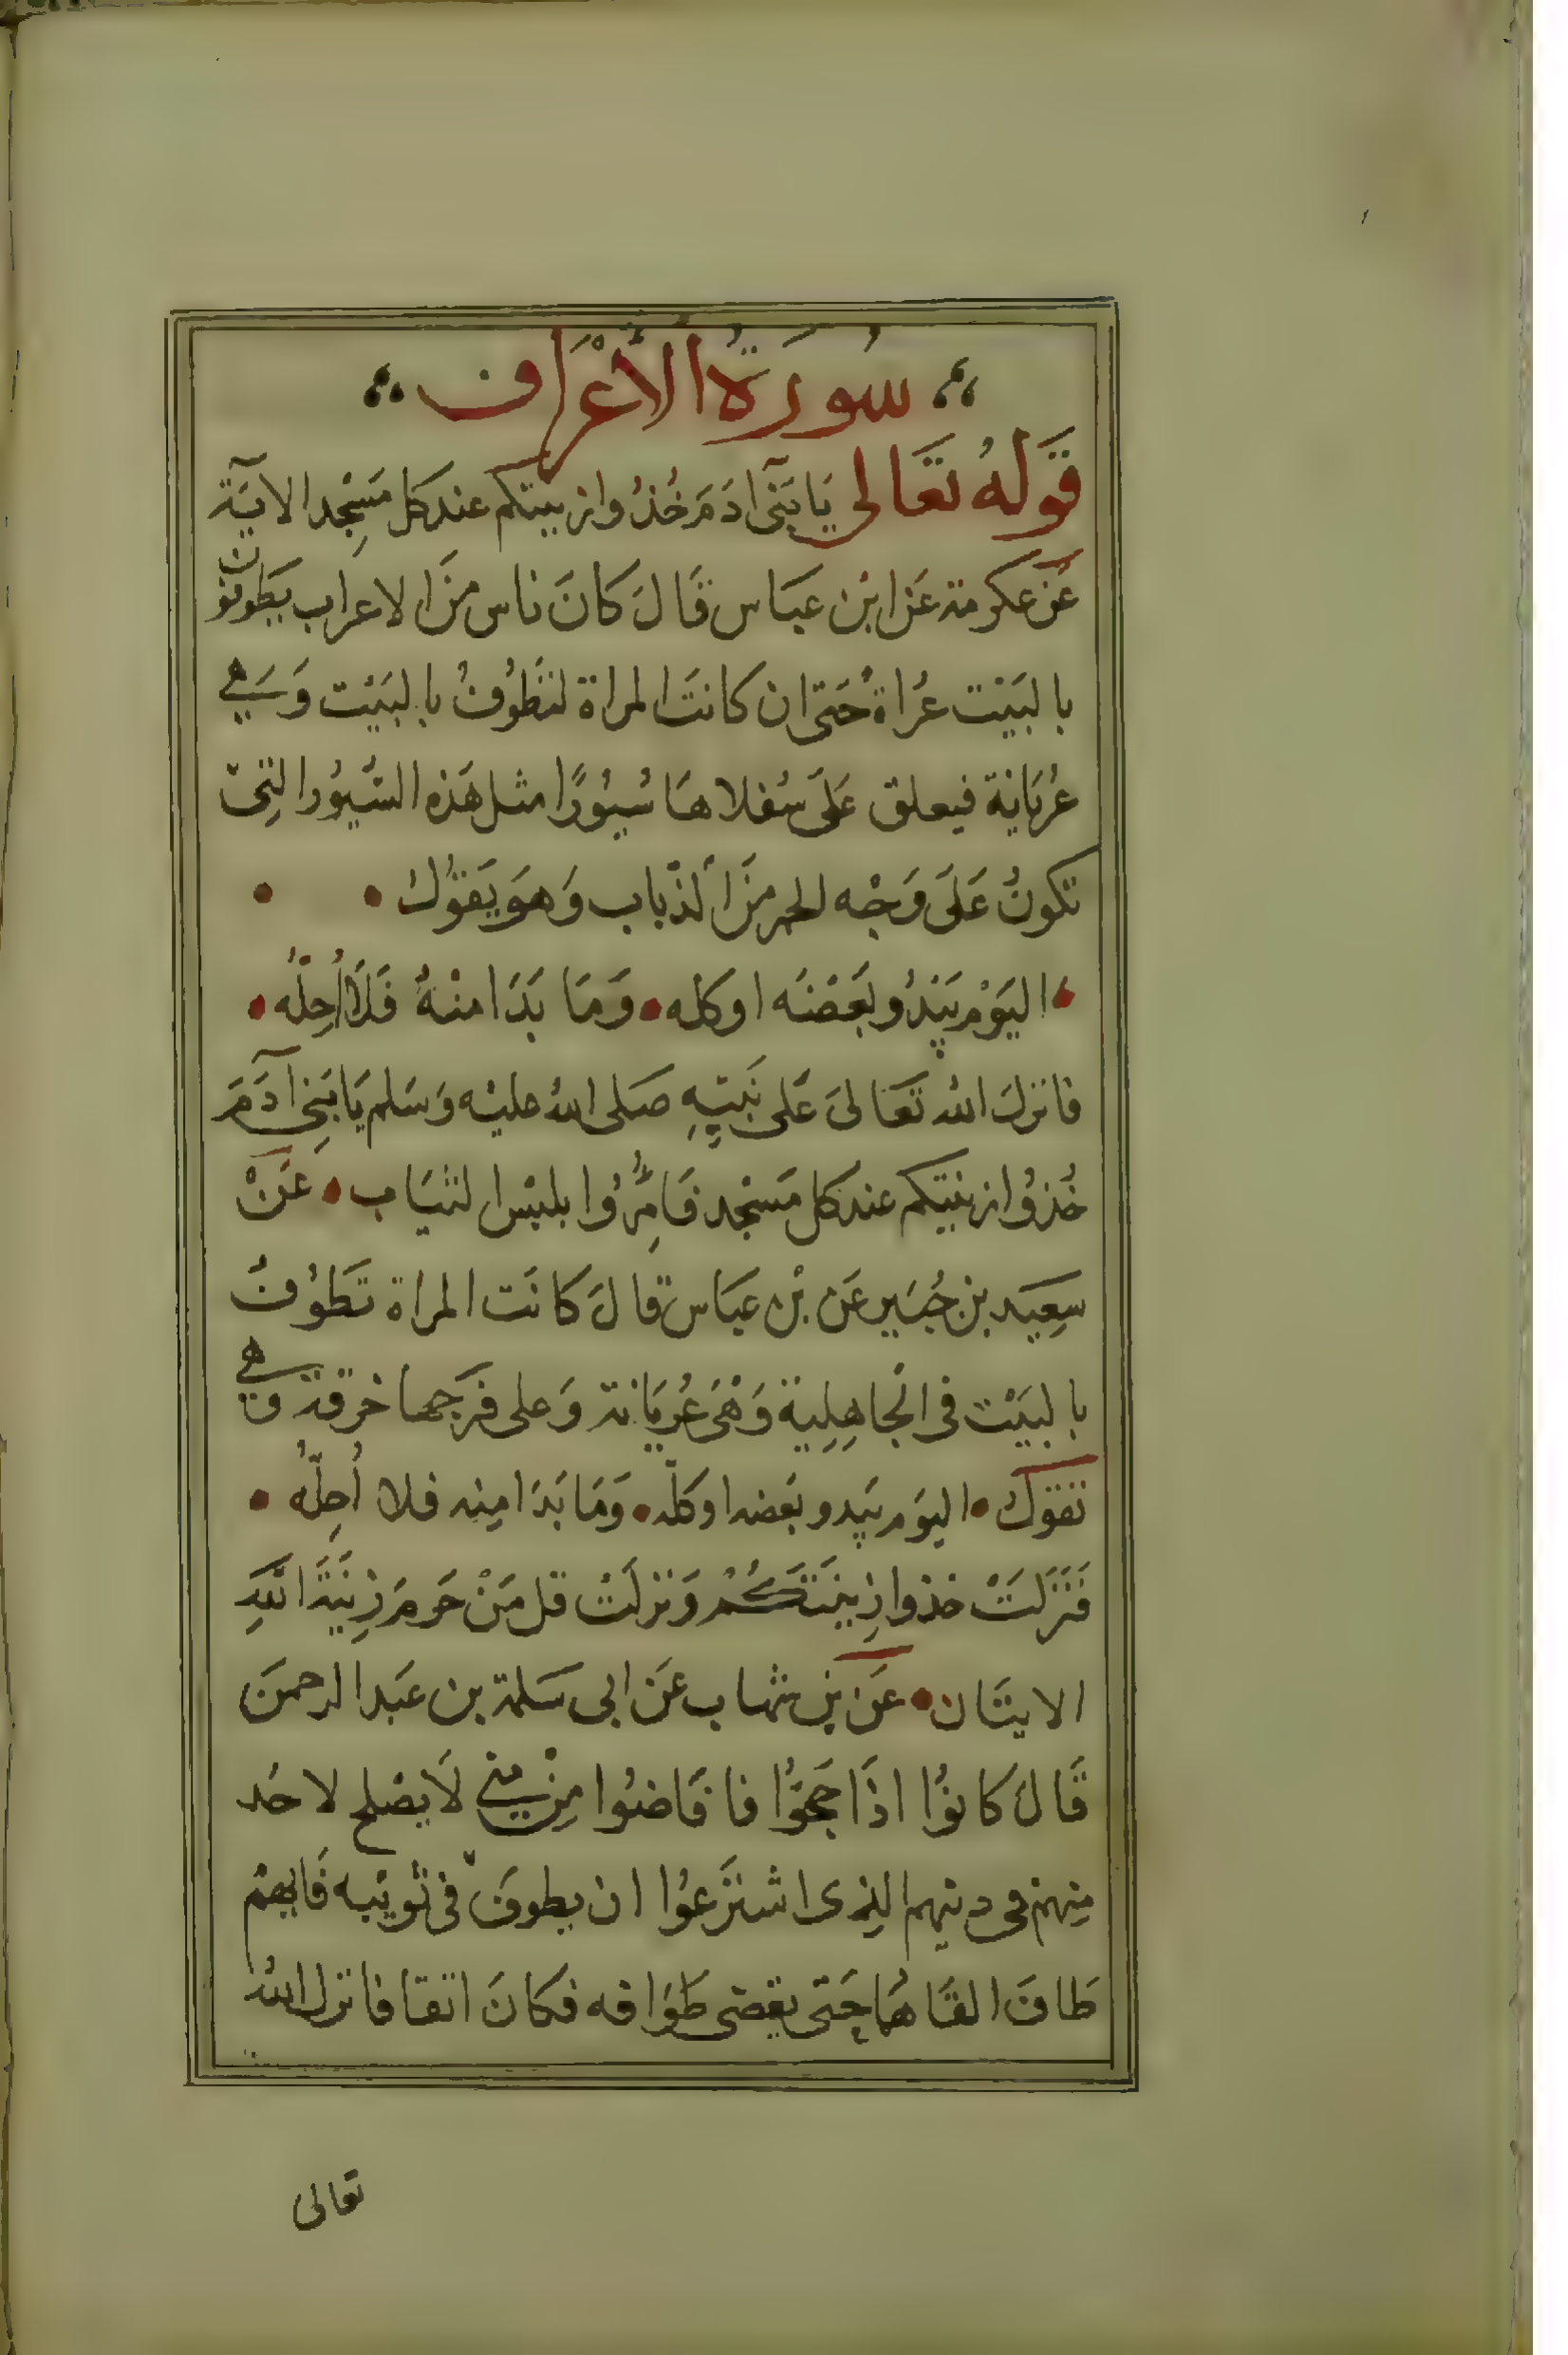 سُورَةُ الأَعْرَاف
قَولُهُ تَعَالى يَا بَنِى ادَمَ خُذُوا زينتكم عند كل مَسْجِد الايَة
عَن عكرمة عَن ابْن عبَاس قَالَ كَانَ ناس مِنَ الاعراب يطوفون
بالبَيْت عُراةً حَتى ان كانت المراة لتَطوُفُ بالبَيْت وَهي
عُريَانة فيعلق عَلَى سُفلاهَا سُيُورًا مثل هَذه السُّيُور التِىّ
تكونُ عَلَى وَجْه الحمر مِنَ الذباب وَهوَ يَقوُلُ
اليَوْمَ يَبْدُو بَعْضُه اوكله وَمَا بَدَا منْهُ فَلَا اُحِلّهُ
فانزلَ الله تَعَالىَ عَلى نَبيّهِ صَلى اللهُ عليْه وَسَلم يَا بَنِى آدَمَ
خُذوُا زينتكم عند كل مَسْجد فَامِرُوا بلبْس الثيَاب عَنْ
سَعِيد بن جُبَير عَن بْن عبَاس قالَ كانَت المراة تَطوُفُ
بالبَيْت فى الجاهِلِية وَهْىَ عُريَانة وَعلى فرَجهَا خرقة وهي
تقوُلُ اليوَم يَبدو بَعضه اوكله وَمَا بَدَا مِنه فلا اُحِلّهُ
فَنَزَلَتْ خذوا زِينَتَكُمْ وَنزلَتْ قل مَنْ حَرمَ زِينَةَ اللهِ
الايتَان عَن بن شهاب عَن ابى سَلمة بن عَبد الرحمنَ
قَالَ كانوُا اذَا حَجوُّا فافَاضُوا مِنْ مِنى لَا يصْلح لاحَد
مِنهمْ فى دينهم الذِى اشترَعوُا ان يطوفَ فى ثوبَيْه فَايهمْ
طافَ القَاهُمَا حَتى يقضى طَوَافه فكانَ اتقا فانزل اللهُ
تعالى